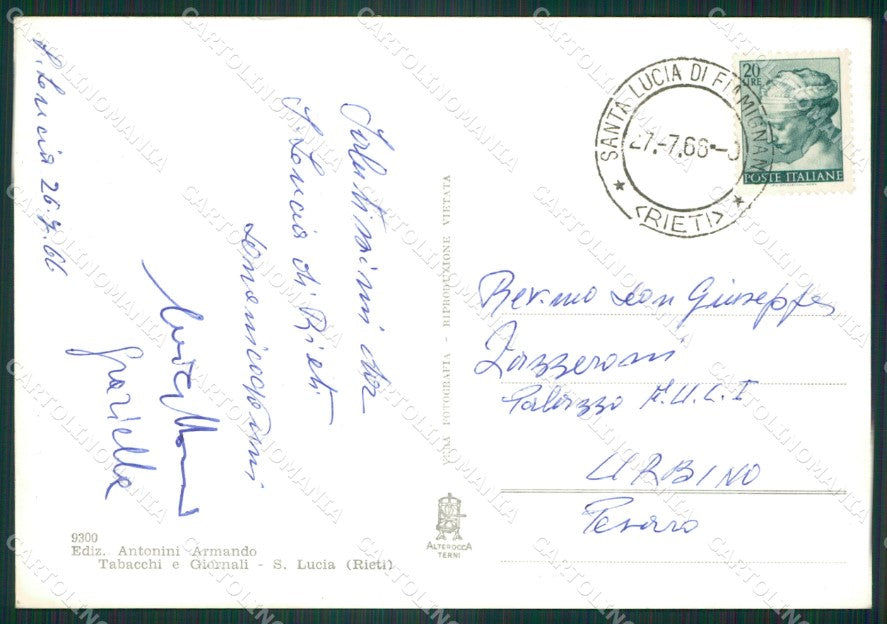 S. Lucia 26.7.66
Salutissimi da
S. Lucia di Rieti
Graziella
9300
Ediz. Antonini Armando
Tabacchi e Giornali - S. Lucia (Rieti)
VERA FOTOGRAFIA - RIPRODUZIONE VIETATA
ALTEROCCA
TERNI
SANTA LUCIA DI FIAMIGNANO
27.-7.66
(RIETI)
20
LIRE
POSTE ITALIANE
Rev.mo Don Giuseppe
Zazzeroni
Palazzo A.U.C.I
URBINO
Pesaro
CARTOLINOMANIA